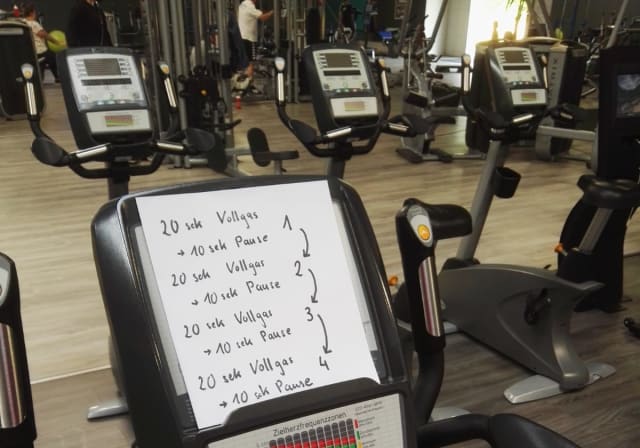 20 sek Vollgas 1
→ 10 sek Pause
20 sek Vollgas 2
→ 10 sek Pause
20 sek Vollgas 3
→ 10 sek Pause
20 sek Vollgas 4
→ 10 sek Pause
Zielherzfrequenzzonen